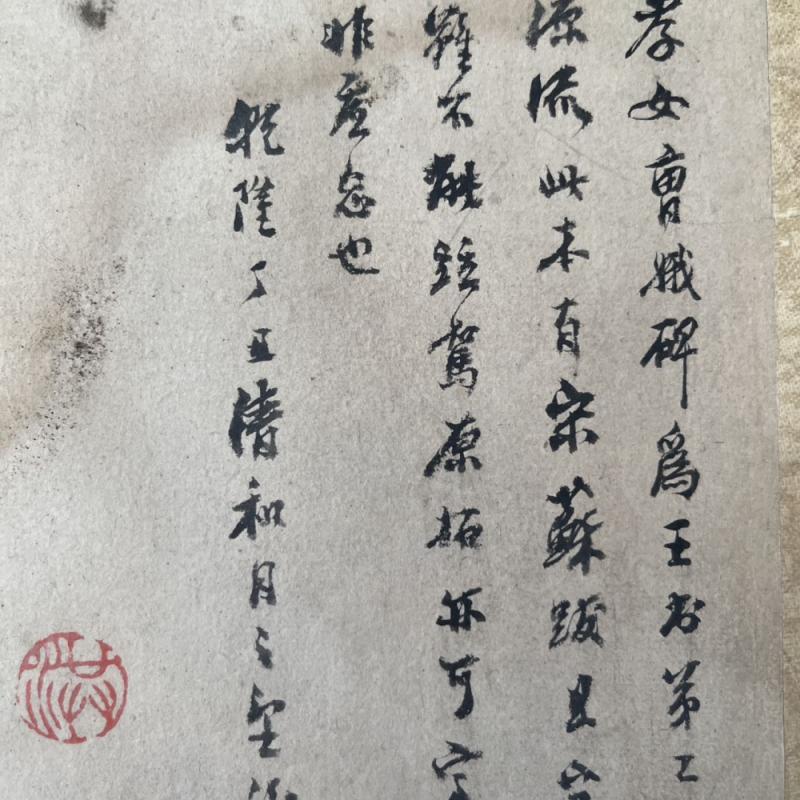 孝女曹娥碑爲王書第一
源流此本有宋蘇跋且
雖不能踪駕原拓亦可
非虛忽也
乾隆丁丑清和月之望